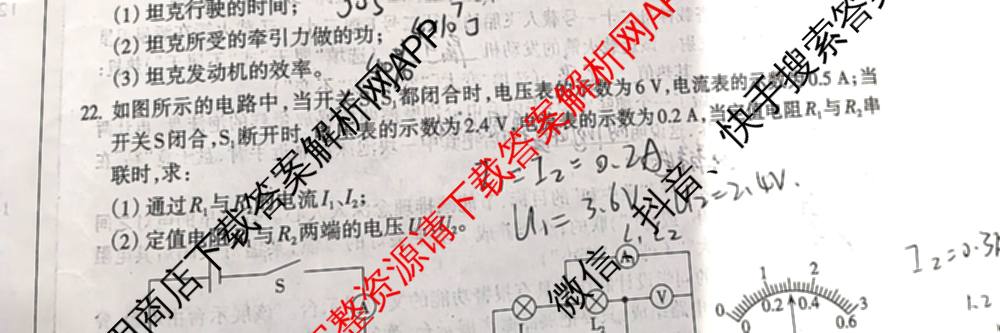 (1) 坦克行驶的时间;
(2) 坦克所受的牵引力做的功;
(3) 坦克发动机的效率。
22. 如图所示的电路中,当开关 S₁都闭合时,电压表的示数为6 V,电流表的示数 0.5 A;当
开关S闭合,S₁断开时 表的示数为2.4 V 表的示数为0.2 A,当 电阻R₁与R₂串
联时,求:
(1) 通过R₁与 电流I₁、I₂;
(2) 定值电阻 与R₂两端的电压U
I₂ = 0.2A
U₁ = 3.6V
₂=2.4V.
答案解析网APP
商店下载
完整资源请下载答案解析网APP
微信
抖音:
快手搜索答案
I₂ = 0.3
1.2
S
A
V
L₂
0 1 2 3
0 0.2 0.4 0.6